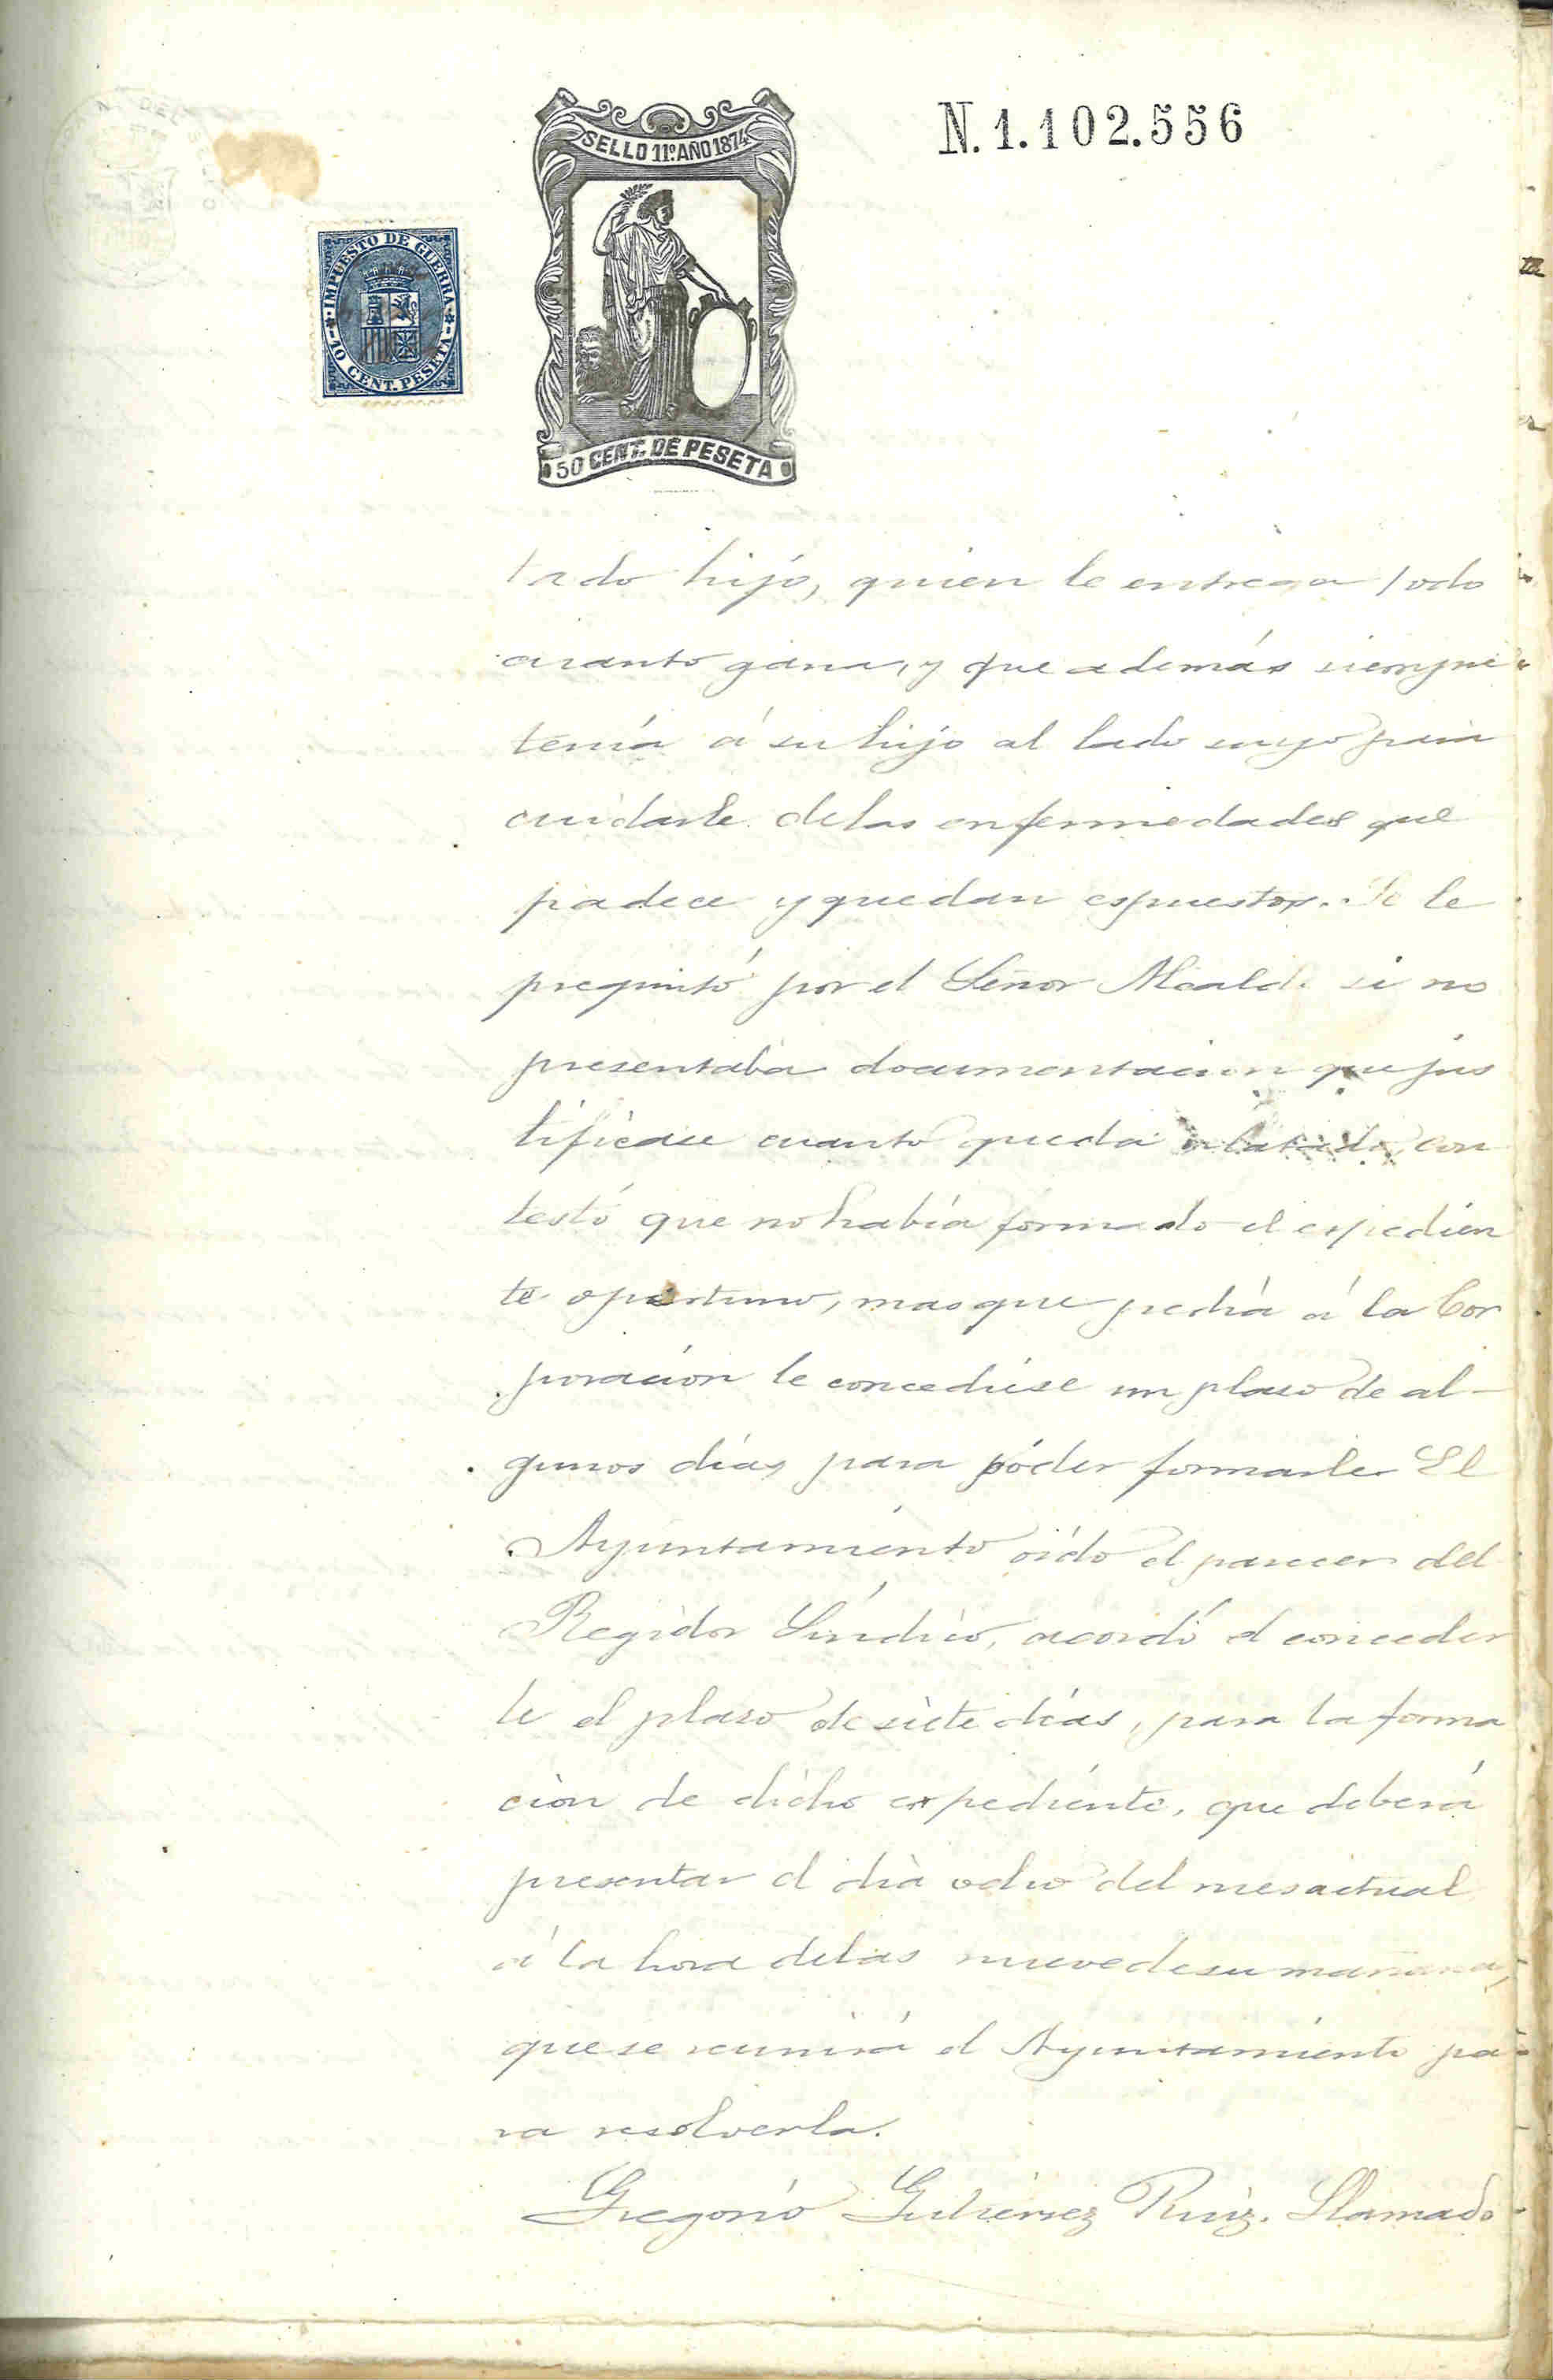 N. 1.102.556
SELLO 11º AÑO 1874
IMPUESTO DE GUERRA
10 CENT. PESETA
50 CENT. DE PESETA
tado hijo, quien le entrega todo
cuanto gana, y que además siempre
tenía á su hijo al lado suyo para
cuidarle de las enfermedades que
padece y quedan espuestas. Se le
preguntó por el Señor Alcalde si no
presentaba documentacion que jus
tificase cuanto queda relatado, con
testó que no había formado el espedien
te oportuno, mas que pedía á la Cor
poración le concediese un plazo de al-
gunos días para póder formarle. El
Ayuntamiento oído el parecer del
Regidor Síndico, acordó el conceder
le el plazo de siete días, para la forma
ción de dicho expediente, que deberá
presentar el día ocho del mes actual
á la hora de las nueve de su mañana,
que se reunirá el Ayuntamiento pa
ra resolverla.
Gregorio Gutiérrez Ruiz. Llamado